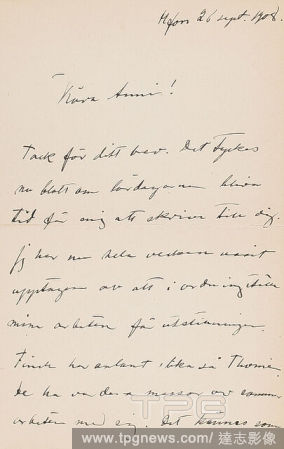 Hfors 26 sept. 1908.
Kära Anni!
Tack för ditt brev. Det tyckes
nu blott om lördagarna bliva
tid för mig att skriva till dig.
Jag har nu hela veckan varit
upptagen av att i ordning ställa
mina arbeten för utställningen.
Finch har anlänt likaså Thomé.
De ha vardera massor av sommar
arbeten med sig. Det kännes som
TPG
www.tpgnews.com/達志影像